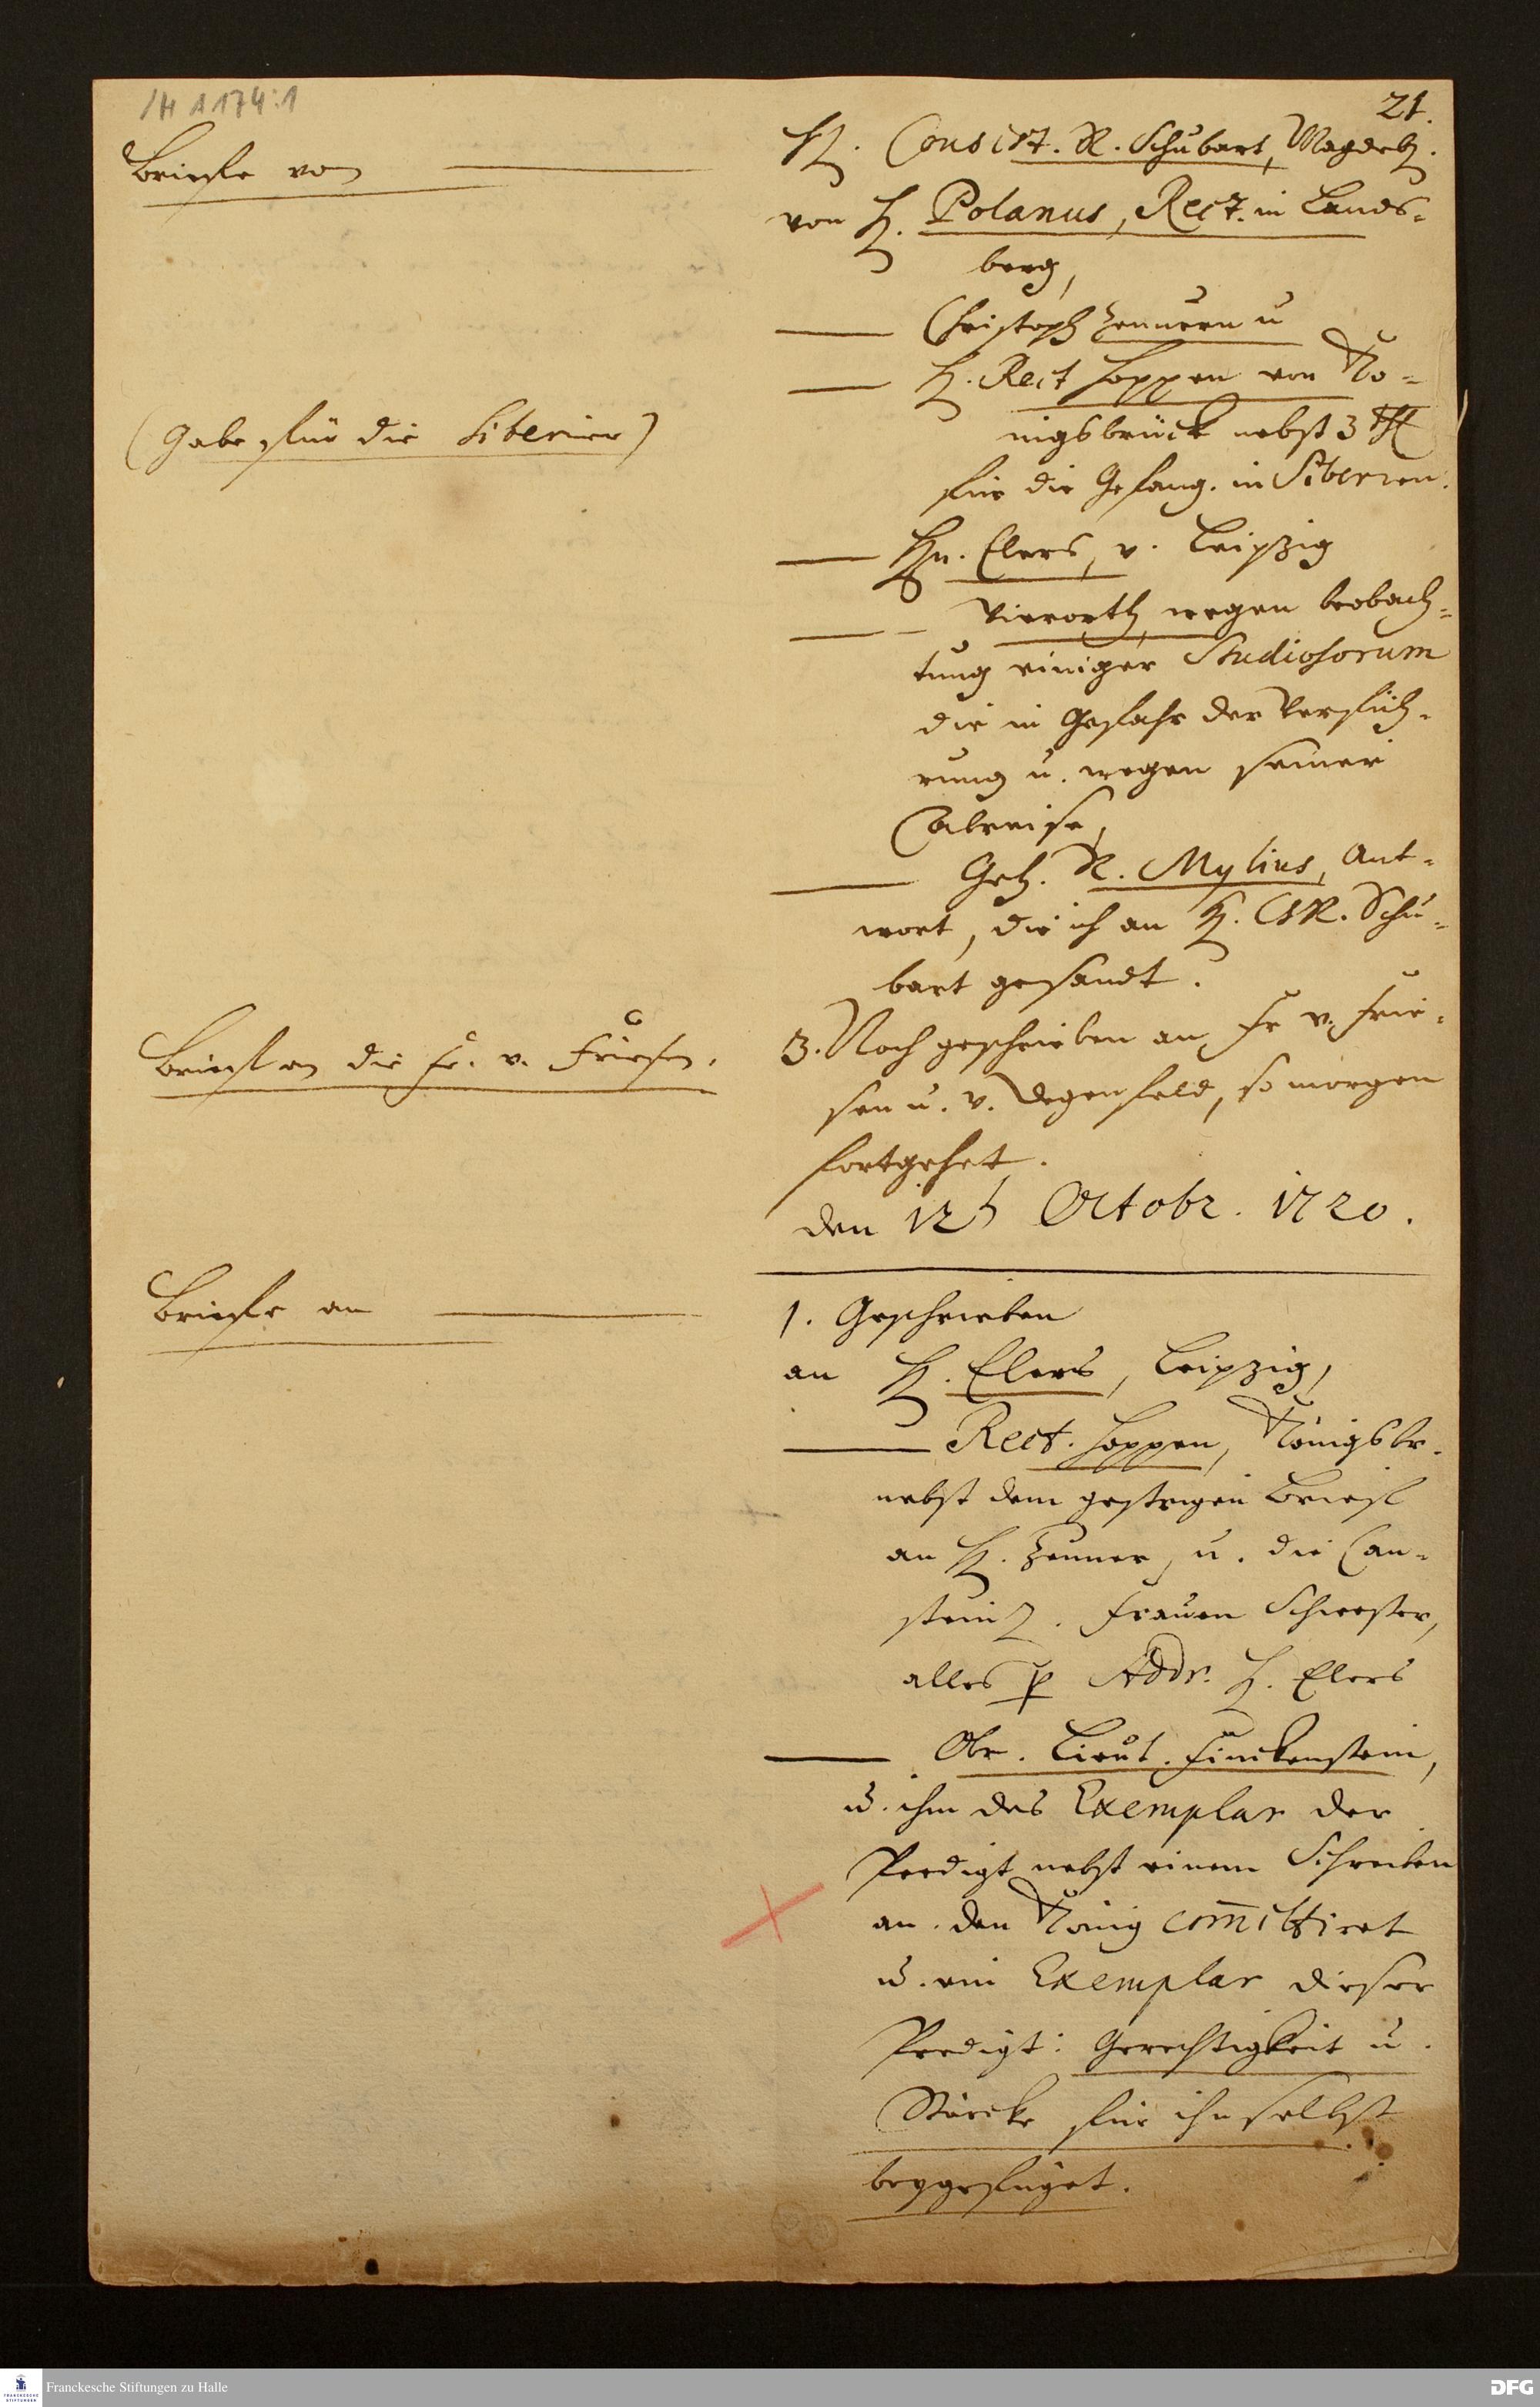 /H A 174:1
21.
Briefe von
H. Consist. R. Schubart, Magdeb.
von H. Polanus, Rect. in Lands-
berg,
Christoph Zennern u
H. Rect Hoppen von Kö-
nigsbrück nebst 3 Thl
(Gabe für die Siberier)
für die Gefang. in Siberien.
Hn. Elers, v. Leipzig
Vieroth wegen beobach-
tung einiger Studiosorum
die in Gefahr der Verfüh-
rung u. wegen seiner
Abreise,
Geh. R. Mylius, Ant-
wort, die ich an H. CR. Schu-
bart gesandt.
Brief an die Fr. v. Friesen.
3. Noch geschrieben an Fr v. Frie-
sen u. v. Degenfeld, so morgen
fortgehet.
den 12t Octobr. 1720.
Briefe an
1. Geschrieben
an H. Elers, Leipzig,
Rect. Hoppen, Königsbr.
nebst dem gestrigen Brief
an H. Zenner, u. die Can-
stein. Frauen Schwester,
alles p Addr. H. Elers
Obr. Lieut. Finckenstein,
u. ihm das Exemplar der
Predigt nebst einem Schreiben
an den König committiret
u. ein Exemplar dieser
Predigt: Gerechtigkeit u.
Stärcke für ihn selbst
beygefüget.
Franckesche Stiftungen zu Halle
FRANCKESCHE
STIFTUNGEN
DFG